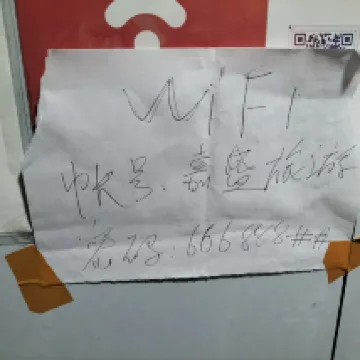 WiFi
帐号:嘉暨旅游
密码:666888##